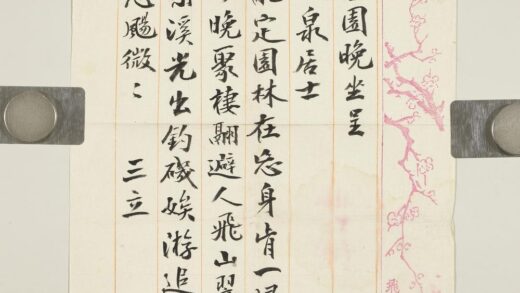 園晚坐呈
泉居士
能定園林在忘身肯一
晚聚棲翮避人飛山翠
溪光出釣磯娭游追
颺微〻
三立
飛